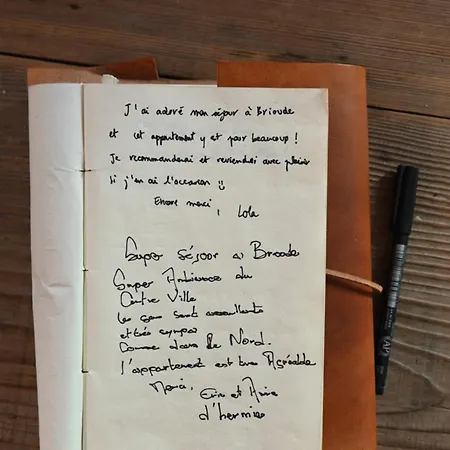 J'ai adoré mon séjour à Brioude
et cet appartement y est pour beaucoup !
Je recommanderai et reviendrai avec plaisir
si j'en ai l'occasion
Encore merci,
Lola
Super séjour à Brioude
Super Ambiance du
Centre Ville
les gens sont accueillants
et très sympas
Comme dans le Nord.
l'appartement est très Agréable
Merci,
et
d'